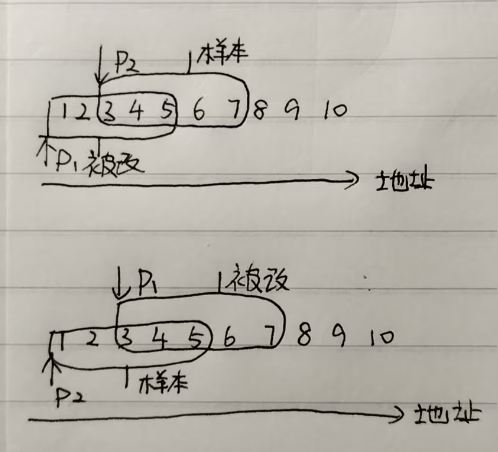 P2 样本
1 2 3 4 5 6 7 8 9 10
P1 被改
地址
P1 被改
1 2 3 4 5 6 7 8 9 10
P2 样本
地址